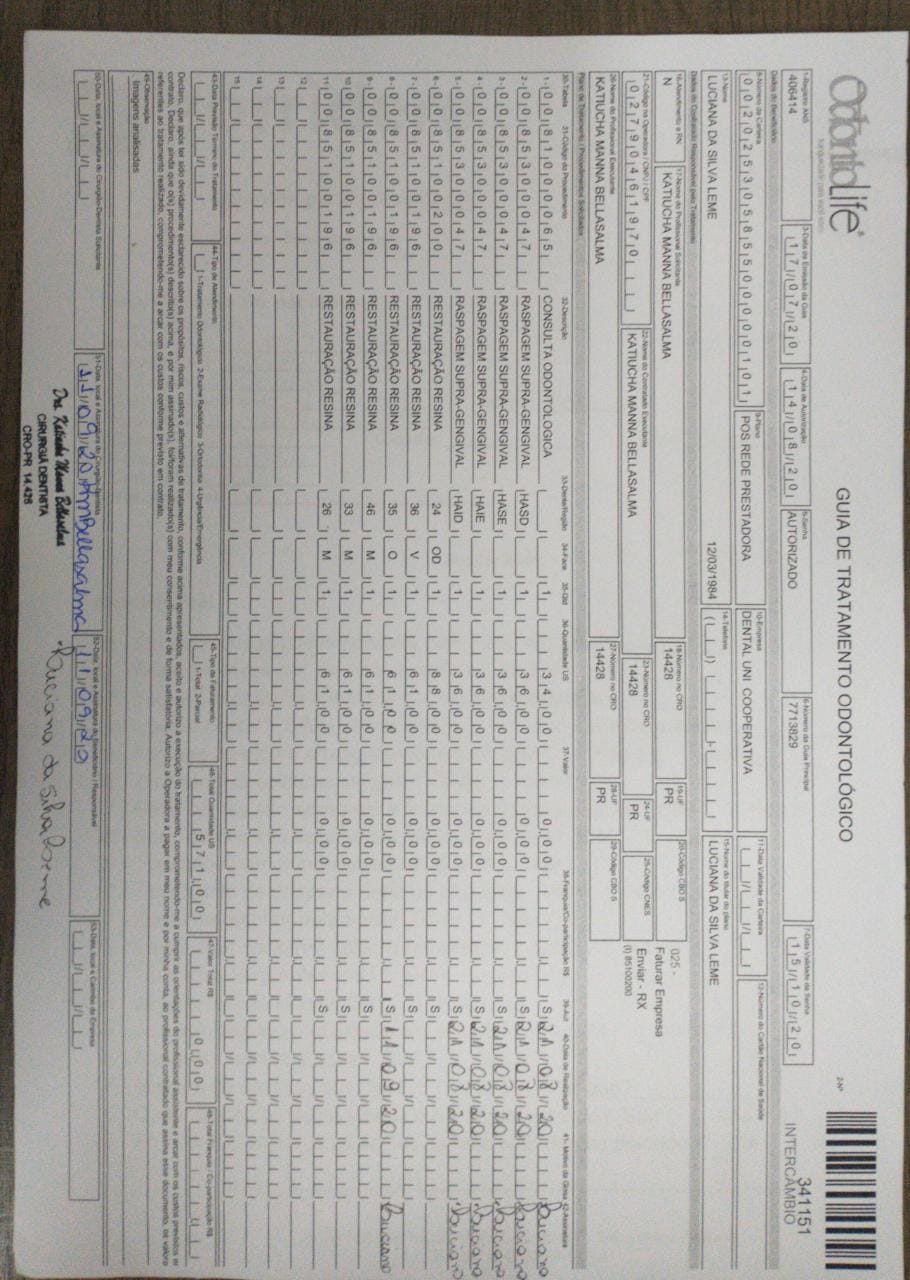 OdontoLife®
tranquilidade para você sorrir
GUIA DE TRATAMENTO ODONTOLÓGICO
2-Nº
341151
INTERCÂMBIO
1-Registro ANS
406414
3-Data de Emissão da Guia
17/07/20
4-Data de Autorização
14/08/20
5-Senha
AUTORIZADO
6-Número da Guia Principal
7713829
7-Data Validade da Senha
15/10/20
Dados do Beneficiário
8-Número da Carteira
00202530585500000101
9-Plano
POS REDE PRESTADORA
10-Empresa
DENTAL UNI COOPERATIVA
11-Data Validade da Carteira
12-Número do Cartão Nacional de Saúde
13-Nome
LUCIANA DA SILVA LEME 12/03/1984
14-Telefone
15-Nome do titular do plano
LUCIANA DA SILVA LEME
Dados do Contratado Responsável pelo Tratamento
16-Atendimento a RN
N
17-Nome do Profissional Solicitante
KATIUCHA MANNA BELLASALMA
18-Número no CRO
14428
19-UF
PR
20-Código CBO S
025 -
Faturar Empresa
Enviar - RX
(I) 85100200
21-Código na Operadora / CNPJ / CPF
02790461970
22-Nome do Contratado Executante
KATIUCHA MANNA BELLASALMA
23-Número no CRO
14428
24-UF
PR
25-Código CNES
26-Nome do Profissional Executante
KATIUCHA MANNA BELLASALMA
27-Número no CRO
14428
28-UF
PR
29-Código CBO S
Plano de Tratamento / Procedimentos Solicitados
30-Tabela 31-Código do Procedimento 32-Descrição 33-Dente/Região 34-Face 35-Qtd 36-Quantidade US 37-Valor 38-Franquia/Co-participação R$ 39-Aut 40-Data de Realização 41- Motivo da Glosa 42-Assinatura
1- 00 81000065 CONSULTA ODONTOLOGICA 1 34,00 0,00 S 21/08/20 Luciana
2- 00 85300047 RASPAGEM SUPRA-GENGIVAL HASD 1 36,00 0,00 S 21/08/20 Luciana
3- 00 85300047 RASPAGEM SUPRA-GENGIVAL HASE 1 36,00 0,00 S 21/08/20 Luciana
4- 00 85300047 RASPAGEM SUPRA-GENGIVAL HAIE 1 36,00 0,00 S 21/08/20 Luciana
5- 00 85300047 RASPAGEM SUPRA-GENGIVAL HAID 1 36,00 0,00 S 21/08/20 Luciana
6- 00 85100200 RESTAURAÇÃO RESINA 24 OD 1 88,00 0,00 S
7- 00 85100196 RESTAURAÇÃO RESINA 36 V 1 61,00 0,00 S
8- 00 85100196 RESTAURAÇÃO RESINA 35 O 1 61,00 0,00 S 11/09/20 Luciana
9- 00 85100196 RESTAURAÇÃO RESINA 46 M 1 61,00 0,00 S
10- 00 85100196 RESTAURAÇÃO RESINA 33 M 1 61,00 0,00 S
11- 00 85100196 RESTAURAÇÃO RESINA 26 M 1 61,00 0,00 S
12-
13-
14-
15-
43-Data Previsão Término do Tratamento
44-Tipo de Atendimento
1-Tratamento Odontológico 2-Exame Radiológico 3-Ortodontia 4-Urgência/Emergência
45-Tipo de Faturamento
1-Total 2-Parcial
46-Total Quantidade US
571,00
47-Valor Total R$
0,00
48-Total Franquia / Co-participação R$
Declaro, que após ter sido devidamente esclarecido sobre os propósitos, riscos, custos e alternativas de tratamento, conforme acima apresentados, aceito e autorizo a execução do tratamento, comprometendo-me a cumprir as orientações do profissional assistente e arcar com os custos previstos em
contrato. Declaro, ainda que o(s) procedimento(s) descrito(s) acima, e por mim assinado(s), foi/foram realizado(s) com meu consentimento e de forma satisfatória. Autorizo a Operadora a pagar em meu nome e por minha conta, ao profissional contratado que assina esse documento, os valores
referentes ao tratamento realizado, comprometendo-me a arcar com os custos conforme previsto em contrato.
49-Observação
Imagens analisadas
50-Data, local e Assinatura do Cirurgião-Dentista Solicitante
51-Data, local e Assinatura do Cirurgião-Dentista
11/09/20 KMBellasalma
52-Data, local e Assinatura do Beneficiário / Responsável
11/09/20
53-Data, local e Carimbo da Empresa
Luciana da Silva Leme
Dra. Katiucha Manna Bellasalma
CIRURGIÃ DENTISTA
CRO-PR 14.428